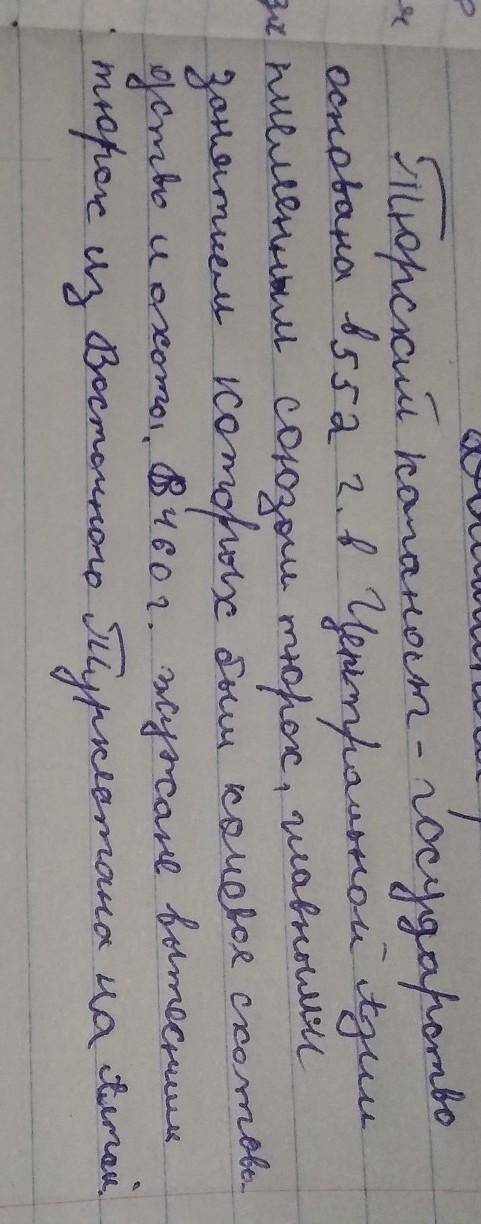 Тюрский каганат - государство
основана в 552 г. в Центральной Азии
племенным союзом тюрок, главными
занятием которых был комевое скотово-
дство и охоты. В 460 г. жужане вытеснили
тюрок из Восточного Туркестана на Алтай.